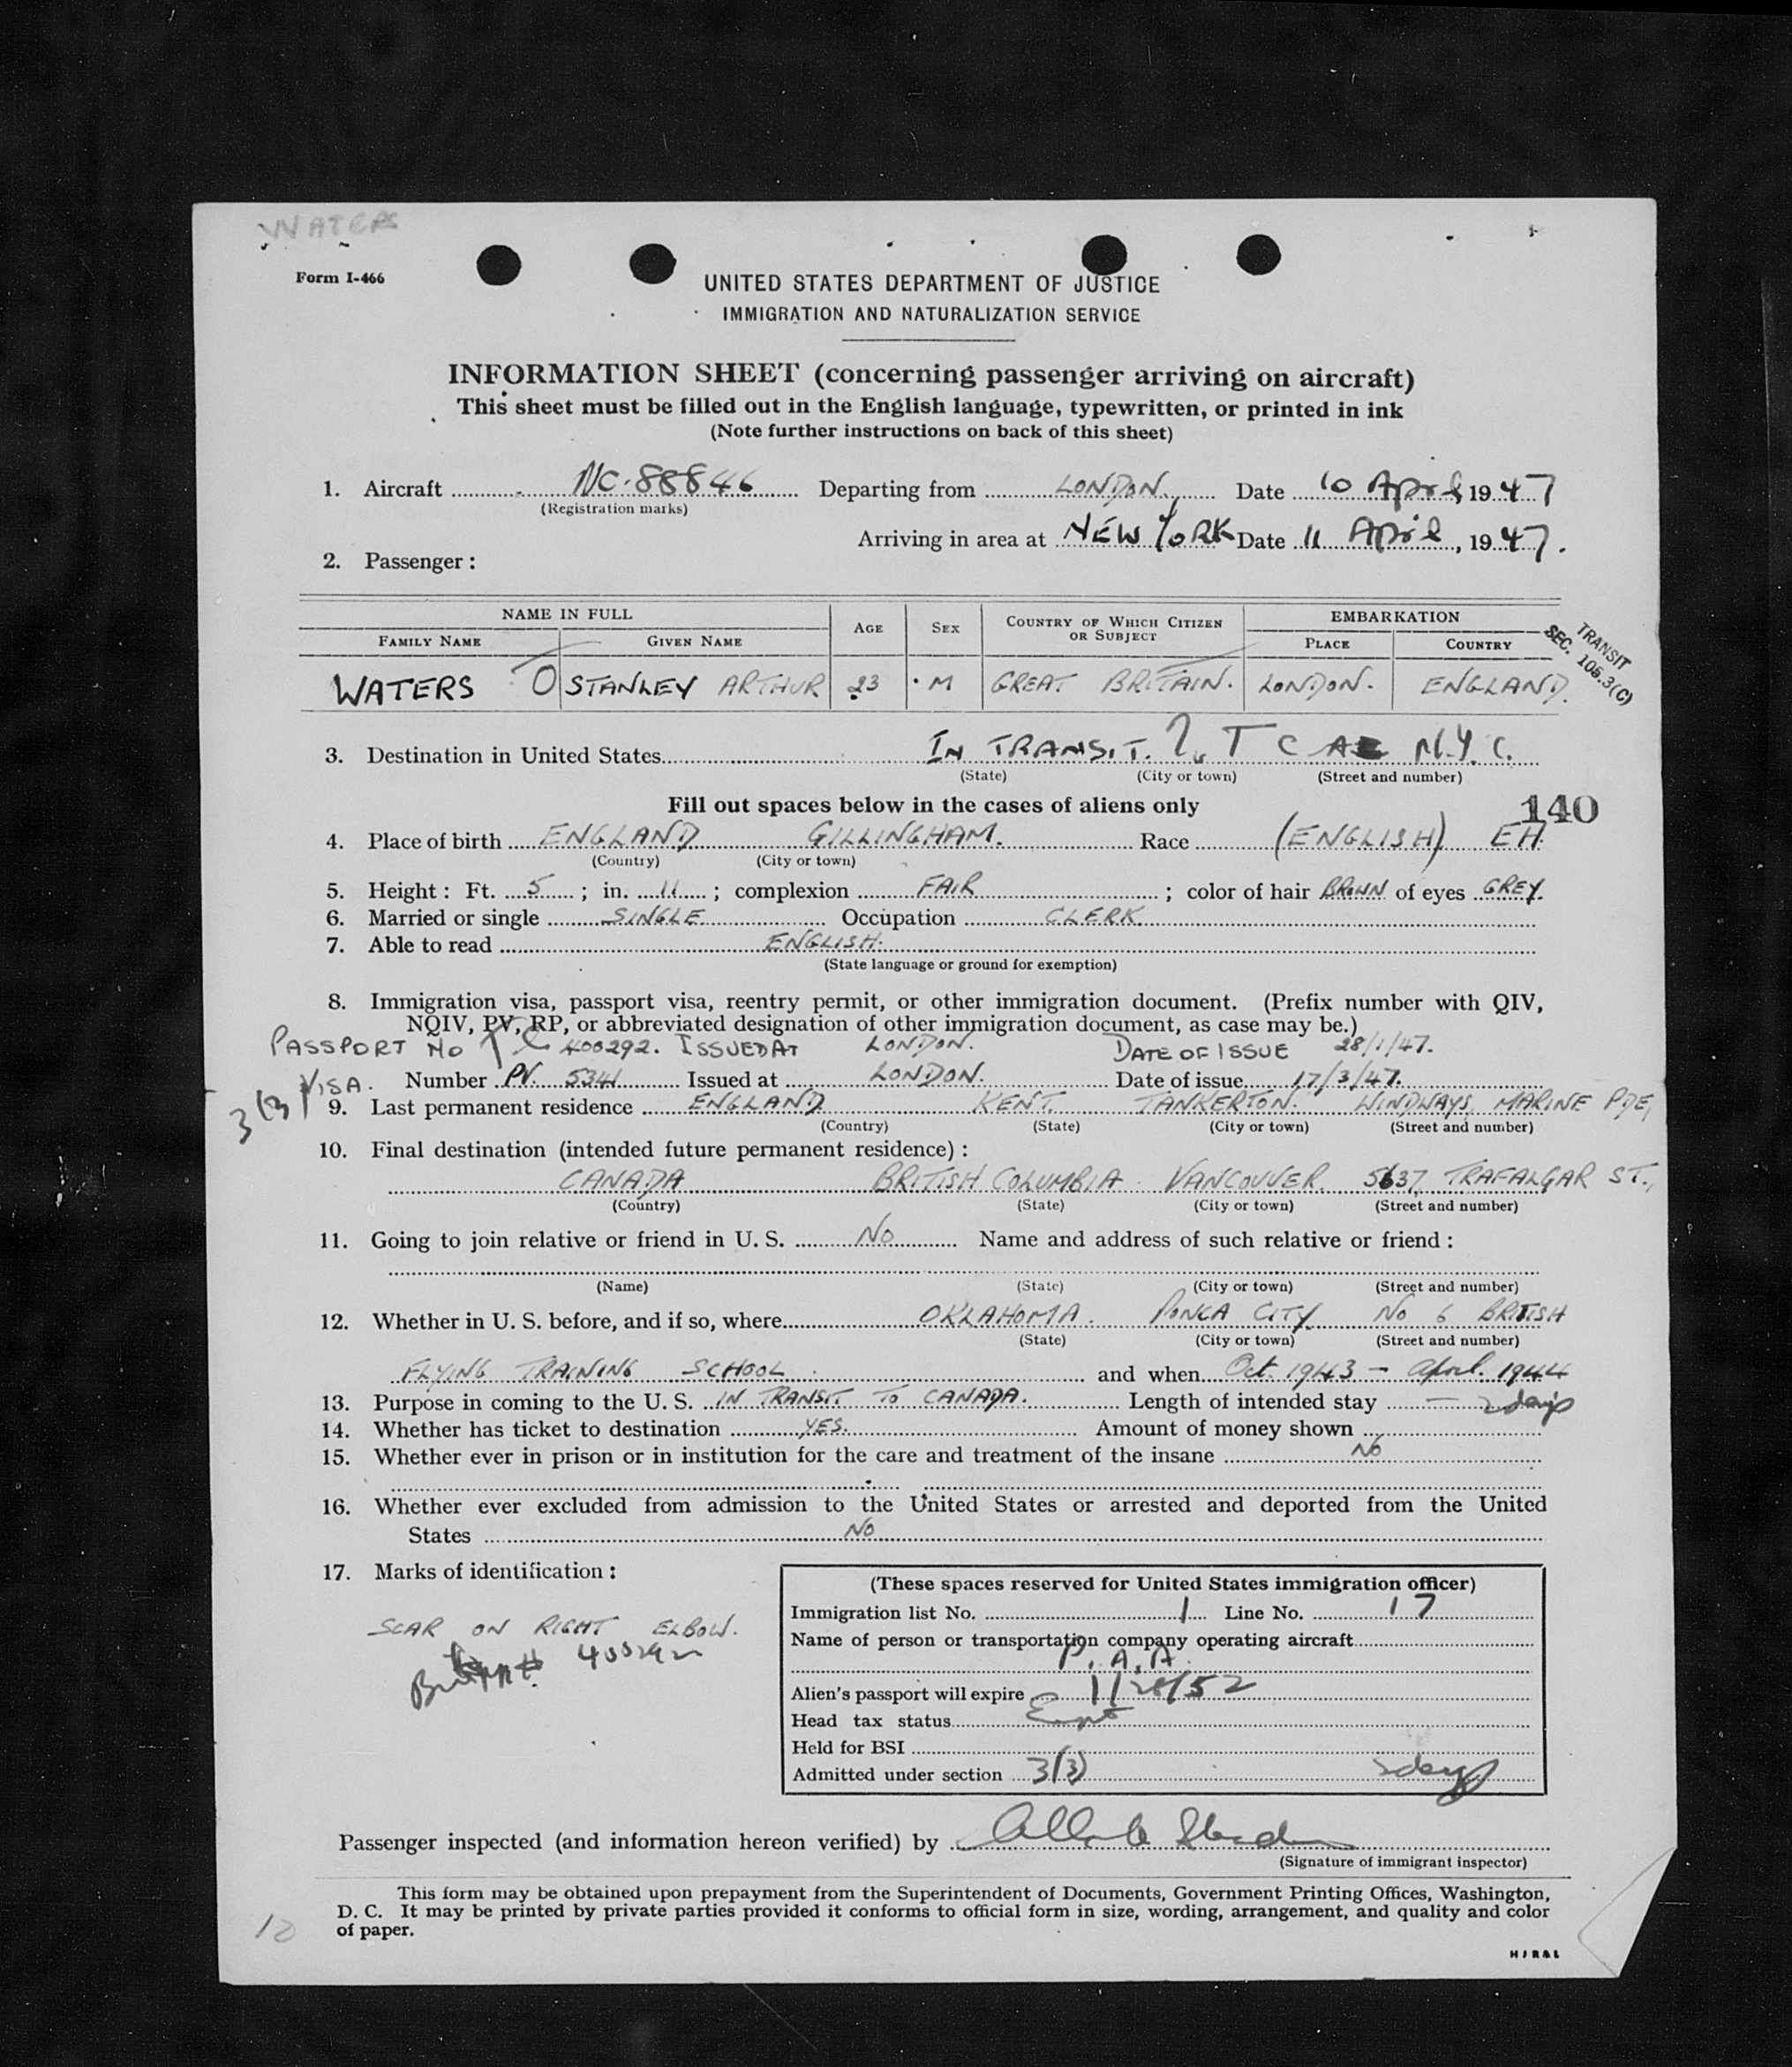 WATERS
Form I-466
UNITED STATES DEPARTMENT OF JUSTICE
IMMIGRATION AND NATURALIZATION SERVICE
INFORMATION SHEET (concerning passenger arriving on aircraft)
This sheet must be filled out in the English language, typewritten, or printed in ink
(Note further instructions on back of this sheet)
1. Aircraft NC.88846 Departing from LONDON. Date 10 April, 1947
(Registration marks)
Arriving in area at NEW YORK Date 11 April, 1947.
2. Passenger:
NAME IN FULL AGE SEX COUNTRY OF WHICH CITIZEN OR SUBJECT EMBARKATION
FAMILY NAME GIVEN NAME PLACE COUNTRY
TRANSIT
SEC. 105.3(C)
WATERS O STANLEY ARTHUR 23 M GREAT BRITAIN. LONDON. ENGLAND.
3. Destination in United States IN TRANSIT. T C A N.Y.C.
(State) (City or town) (Street and number)
Fill out spaces below in the cases of aliens only
140
4. Place of birth ENGLAND GILLINGHAM. Race (ENGLISH) EH
(Country) (City or town)
5. Height: Ft. 5; in. 11; complexion FAIR; color of hair BROWN of eyes GREY.
6. Married or single SINGLE Occupation CLERK.
7. Able to read ENGLISH.
(State language or ground for exemption)
8. Immigration visa, passport visa, reentry permit, or other immigration document. (Prefix number with QIV,
NQIV, PV, RP, or abbreviated designation of other immigration document, as case may be.)
PASSPORT NO 400292. ISSUED AT LONDON. DATE OF ISSUE 28/1/47.
VISA. Number PV. 5341 Issued at LONDON. Date of issue 17/3/47.
3(3)
9. Last permanent residence ENGLAND KENT. TANKERTON. WINDWAYS, MARINE PDE,
(Country) (State) (City or town) (Street and number)
10. Final destination (intended future permanent residence):
CANADA BRITISH COLUMBIA. VANCOUVER. 5637, TRAFALGAR ST.,
(Country) (State) (City or town) (Street and number)
11. Going to join relative or friend in U. S. NO Name and address of such relative or friend:
(Name) (State) (City or town) (Street and number)
12. Whether in U. S. before, and if so, where OKLAHOMA. PONCA CITY NO 6 BRITISH
(State) (City or town) (Street and number)
FLYING TRAINING SCHOOL. and when Oct. 1943 - April. 1944
13. Purpose in coming to the U. S. IN TRANSIT TO CANADA. Length of intended stay — 2 days
14. Whether has ticket to destination YES. Amount of money shown
15. Whether ever in prison or in institution for the care and treatment of the insane NO
16. Whether ever excluded from admission to the United States or arrested and deported from the United
States NO
17. Marks of identification:
SCAR ON RIGHT ELBOW.
400292
(These spaces reserved for United States immigration officer)
Immigration list No. 1 Line No. 17
Name of person or transportation company operating aircraft
P.A.A.
Alien's passport will expire 1/28/52
Head tax status
Held for BSI
Admitted under section 3(3) 2 days
Passenger inspected (and information hereon verified) by
(Signature of immigrant inspector)
This form may be obtained upon prepayment from the Superintendent of Documents, Government Printing Offices, Washington,
D. C. It may be printed by private parties provided it conforms to official form in size, wording, arrangement, and quality and color
of paper.
10
HJR&L